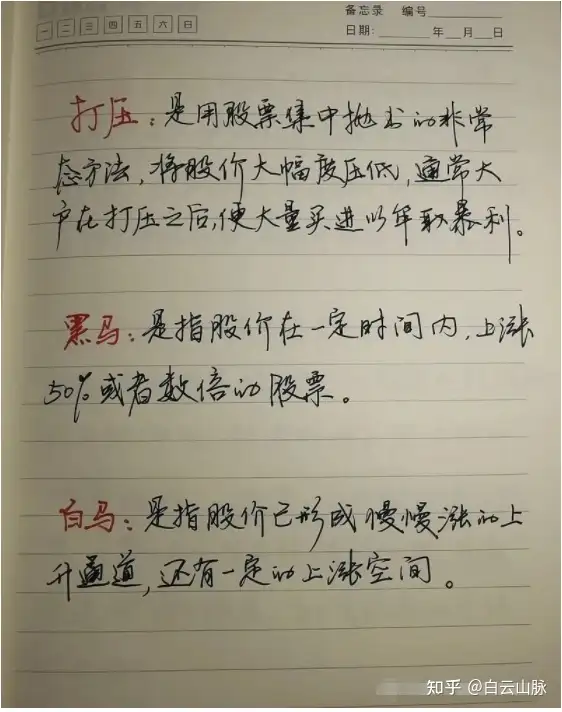 备忘录 编号
一 二 三 四 五 六 日
日期： 年 月 日
打压：是用股票集中抛出的非常
态方法，将股价大幅度压低，通常大
户在打压之后，便大量买进以牟取暴利。
黑马：是指股价在一定时间内，上涨
50%或者数倍的股票。
白马：是指股价已形成慢慢涨的上
升通道，还有一定的上涨空间。
知乎 @白云山脉